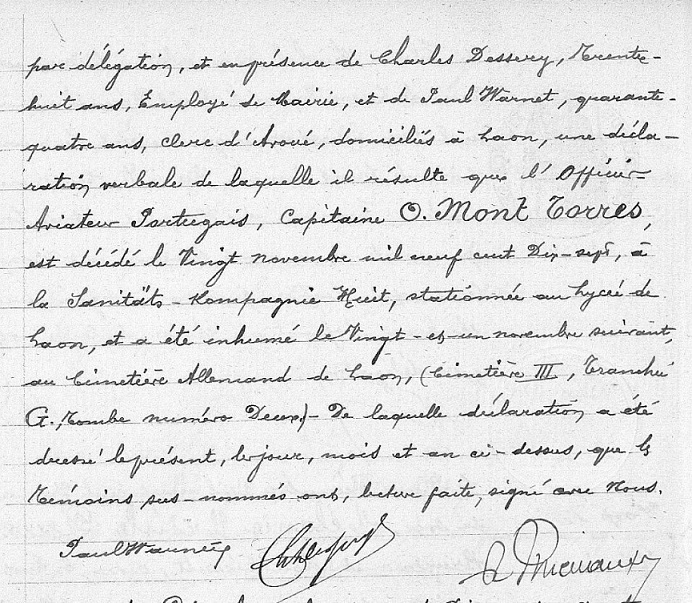 par délégation, et en présence de Charles Dessery, Trente-
huit ans, Employé de Mairie, et de Paul Warnet, quarante-
quatre ans, Clerc d'Avoué, domiciliés à Laon, une décla-
ration verbale de laquelle il résulte que l'Officier
Aviateur Portugais, Capitaine O. Mont Torres,
est décédé le Vingt novembre mil neuf cent Dix-sept, à
la Sanitäts-Kompagnie Huit, stationnée au Lycée de
Laon, et a été inhumé le Vingt-et-un novembre suivant,
au Cimetière Allemand de Laon, (Cimetière III, Tranchée
G., Tombe numéro Deux).- De laquelle déclaration a été
dressé le présent, les jour, mois et an ci-dessus, que les
témoins sus-nommés ont, lecture faite, signé avec Nous.
Paul Warnet